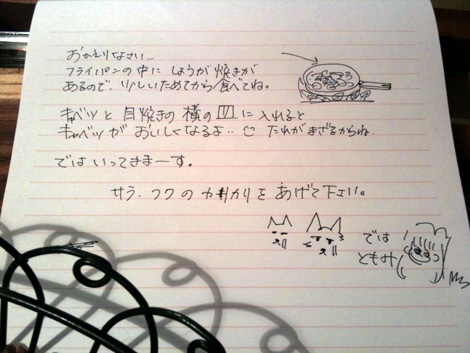 おかえりなさい...
フライパンの中に しょうが焼きが
あるので、少しあたためてから食べてね。
キャベツと 目焼きの 横の に 入れると
キャベツが おいしくなるよ.. たれがまざるからね.
では いってきまーす。
サラ、フクの カリカリを あげて下さい。
では
ともみ